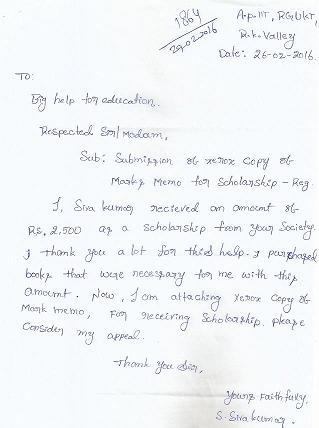 1864
29-02-2016
A.p-IIIT, RGUKT,
R.K. Valley
Date: 26-02-2016.
TO:
Big help for education.
Respected Sir/Madam,
Sub: Submission of xerox copy of
Marks Memo for Scholarship - Reg.
I, Siva kumar recieved an amount of
Rs. 2,500 as a scholarship from your Society.
I thank you a lot for this help. I purchased
books that were necessary for me with this
amount. Now, I am attaching xerox copy of
Mark memo, For receiving Scholarship. please
Consider my appeal.
Thank you Sir,
Yours Faithfully,
S. Siva kumar.